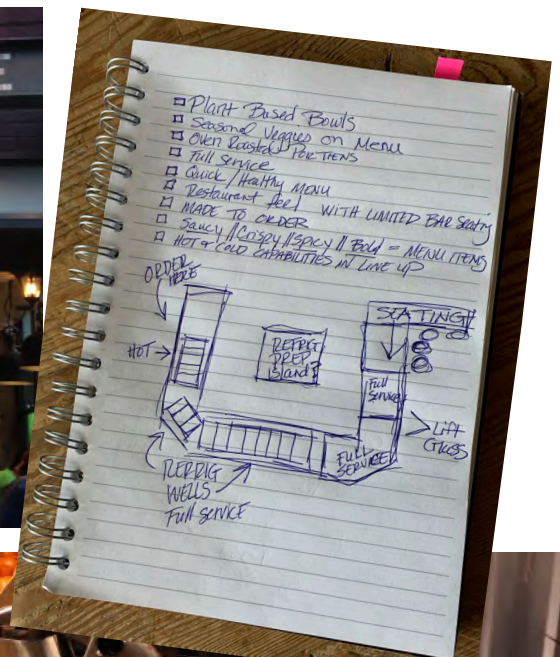 Plant Based Bowls
Seasonal Veggies on Menu
Oven Roasted PorTIENS
Full Service
Quick / Healthy MENU
Restaurant feel WITH LIMITED BAR Seating
MADE TO ORDER
Saucy // Crispy // Spicy // Bold = MENU ITEMS
HOT & COLD CAPABILITIES IN LINE UP
ORDER
HERE
SEATING
HOT
REFRIG
PREP
Island?
Full
Service
Lift
Glass
FULL
SERVICE
REFRIG
WELLS
Full SERVICE